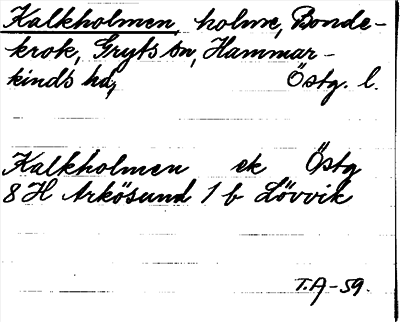 Kalkholmen, holme, Bonde-
krok, Gryts sn, Hammar-
kinds hd, Östg. l.
Kalkholmen ek Östg
8H Arkösund 1 b Lövvik
T.A-59.